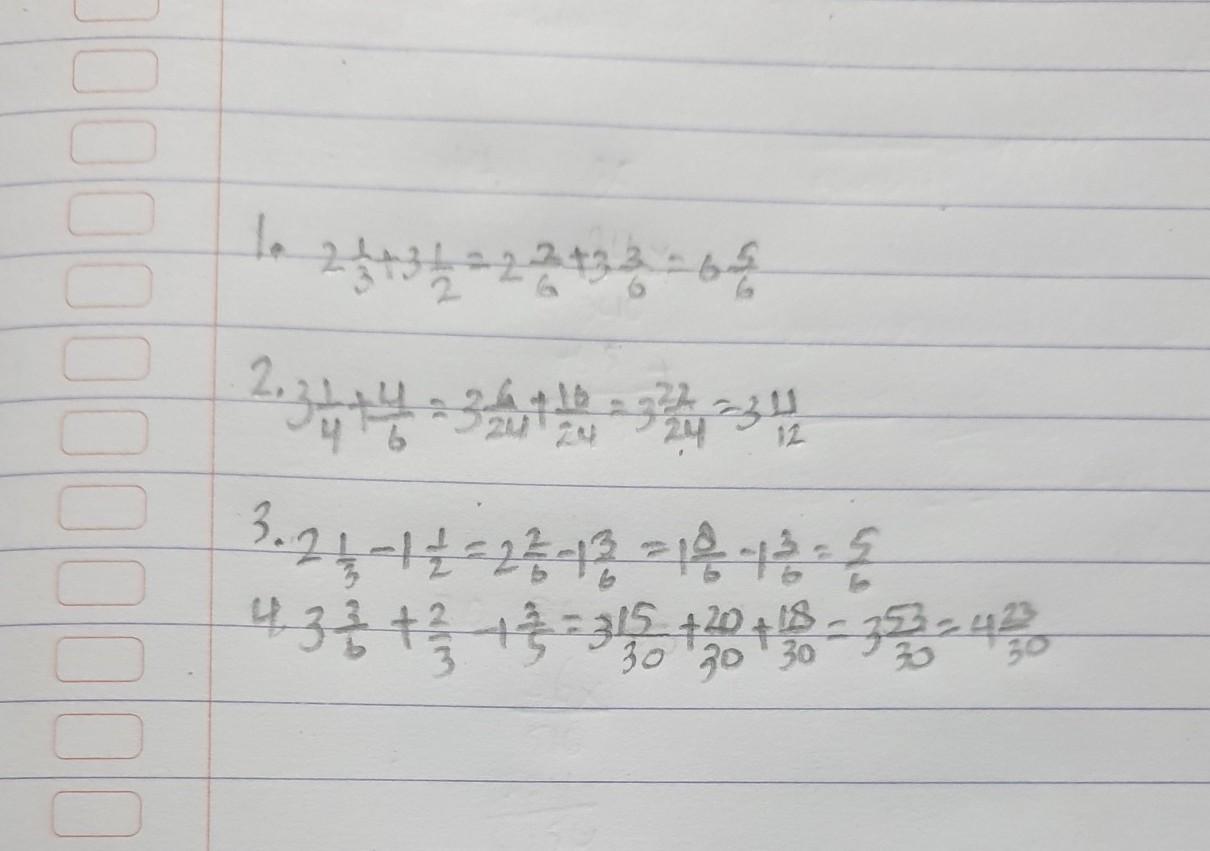 1. 2 1/3 + 3 1/2 = 2 2/6 + 3 3/6 = 6 5/6
2. 3 1/4 + 4/6 = 3 6/24 + 16/24 = 3 22/24 = 3 11/12
3. 2 1/3 - 1 1/2 = 2 2/6 - 1 3/6 = 1 8/6 - 1 3/6 = 5/6
4. 3 3/6 + 2/3 + 3/5 = 3 15/30 + 20/30 + 18/30 = 3 53/30 = 4 23/30